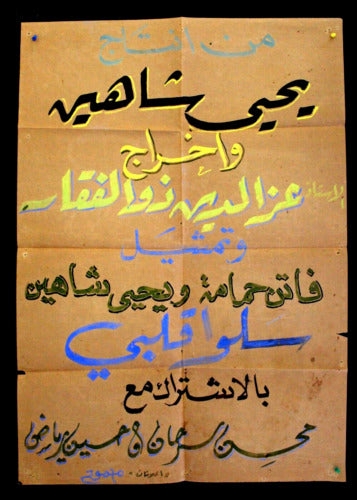 من انتاج
يحيى شاهين
واخراج
الاستاذ عز الدين ذو الفقار
وتمثيل
فاتن حمامة ويحيى شاهين
سلوا قلبي
بالاشتراك مع
محسن سرحان وحسين رياض